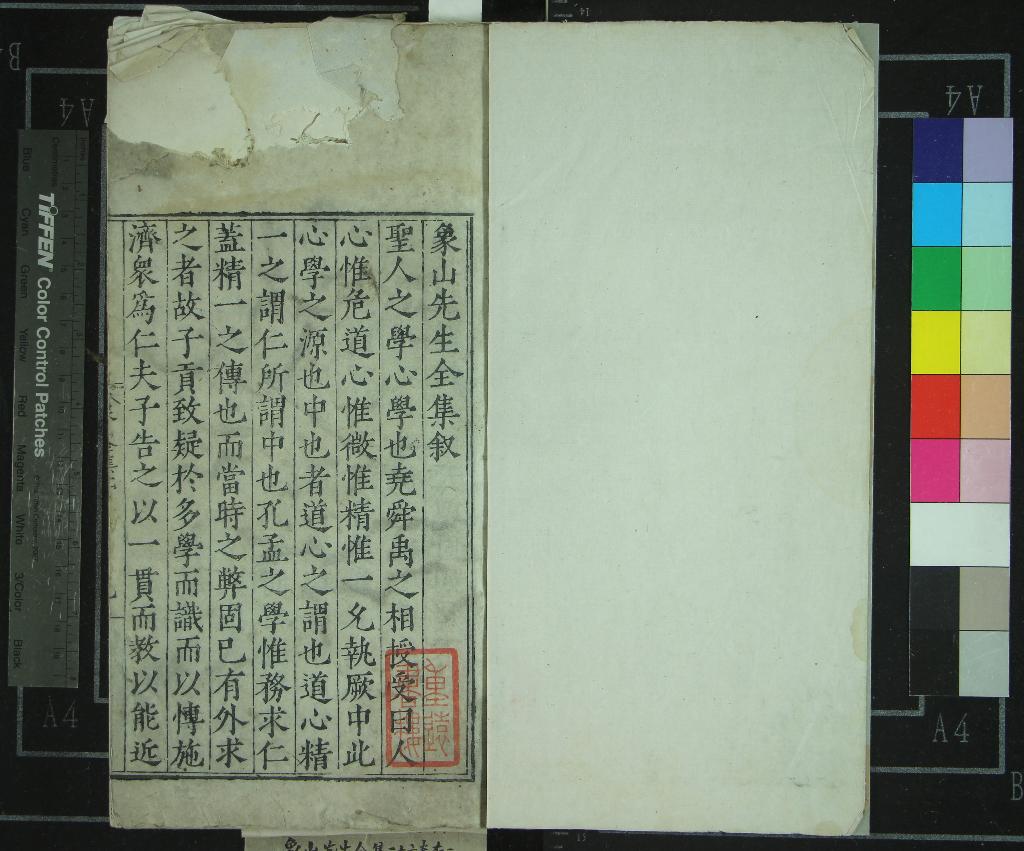 象山先生全集叙
聖人之學心學也堯舜禹之相授受曰人
心惟危道心惟微惟精惟一允執厥中此
心學之源也中也者道心之謂也道心精
一之謂仁所謂中也孔孟之學惟務求仁
蓋精一之傳也而當時之弊固已有外求
之者故子貢致疑於多學而識而以博施
濟衆爲仁夫子告之以一貫而教以能近
TIFFEN Color Control Patches
Blue
Cyan
Green
Yellow
Red
Magenta
White
3/Color
Black
A4
A4
A4
A4
B